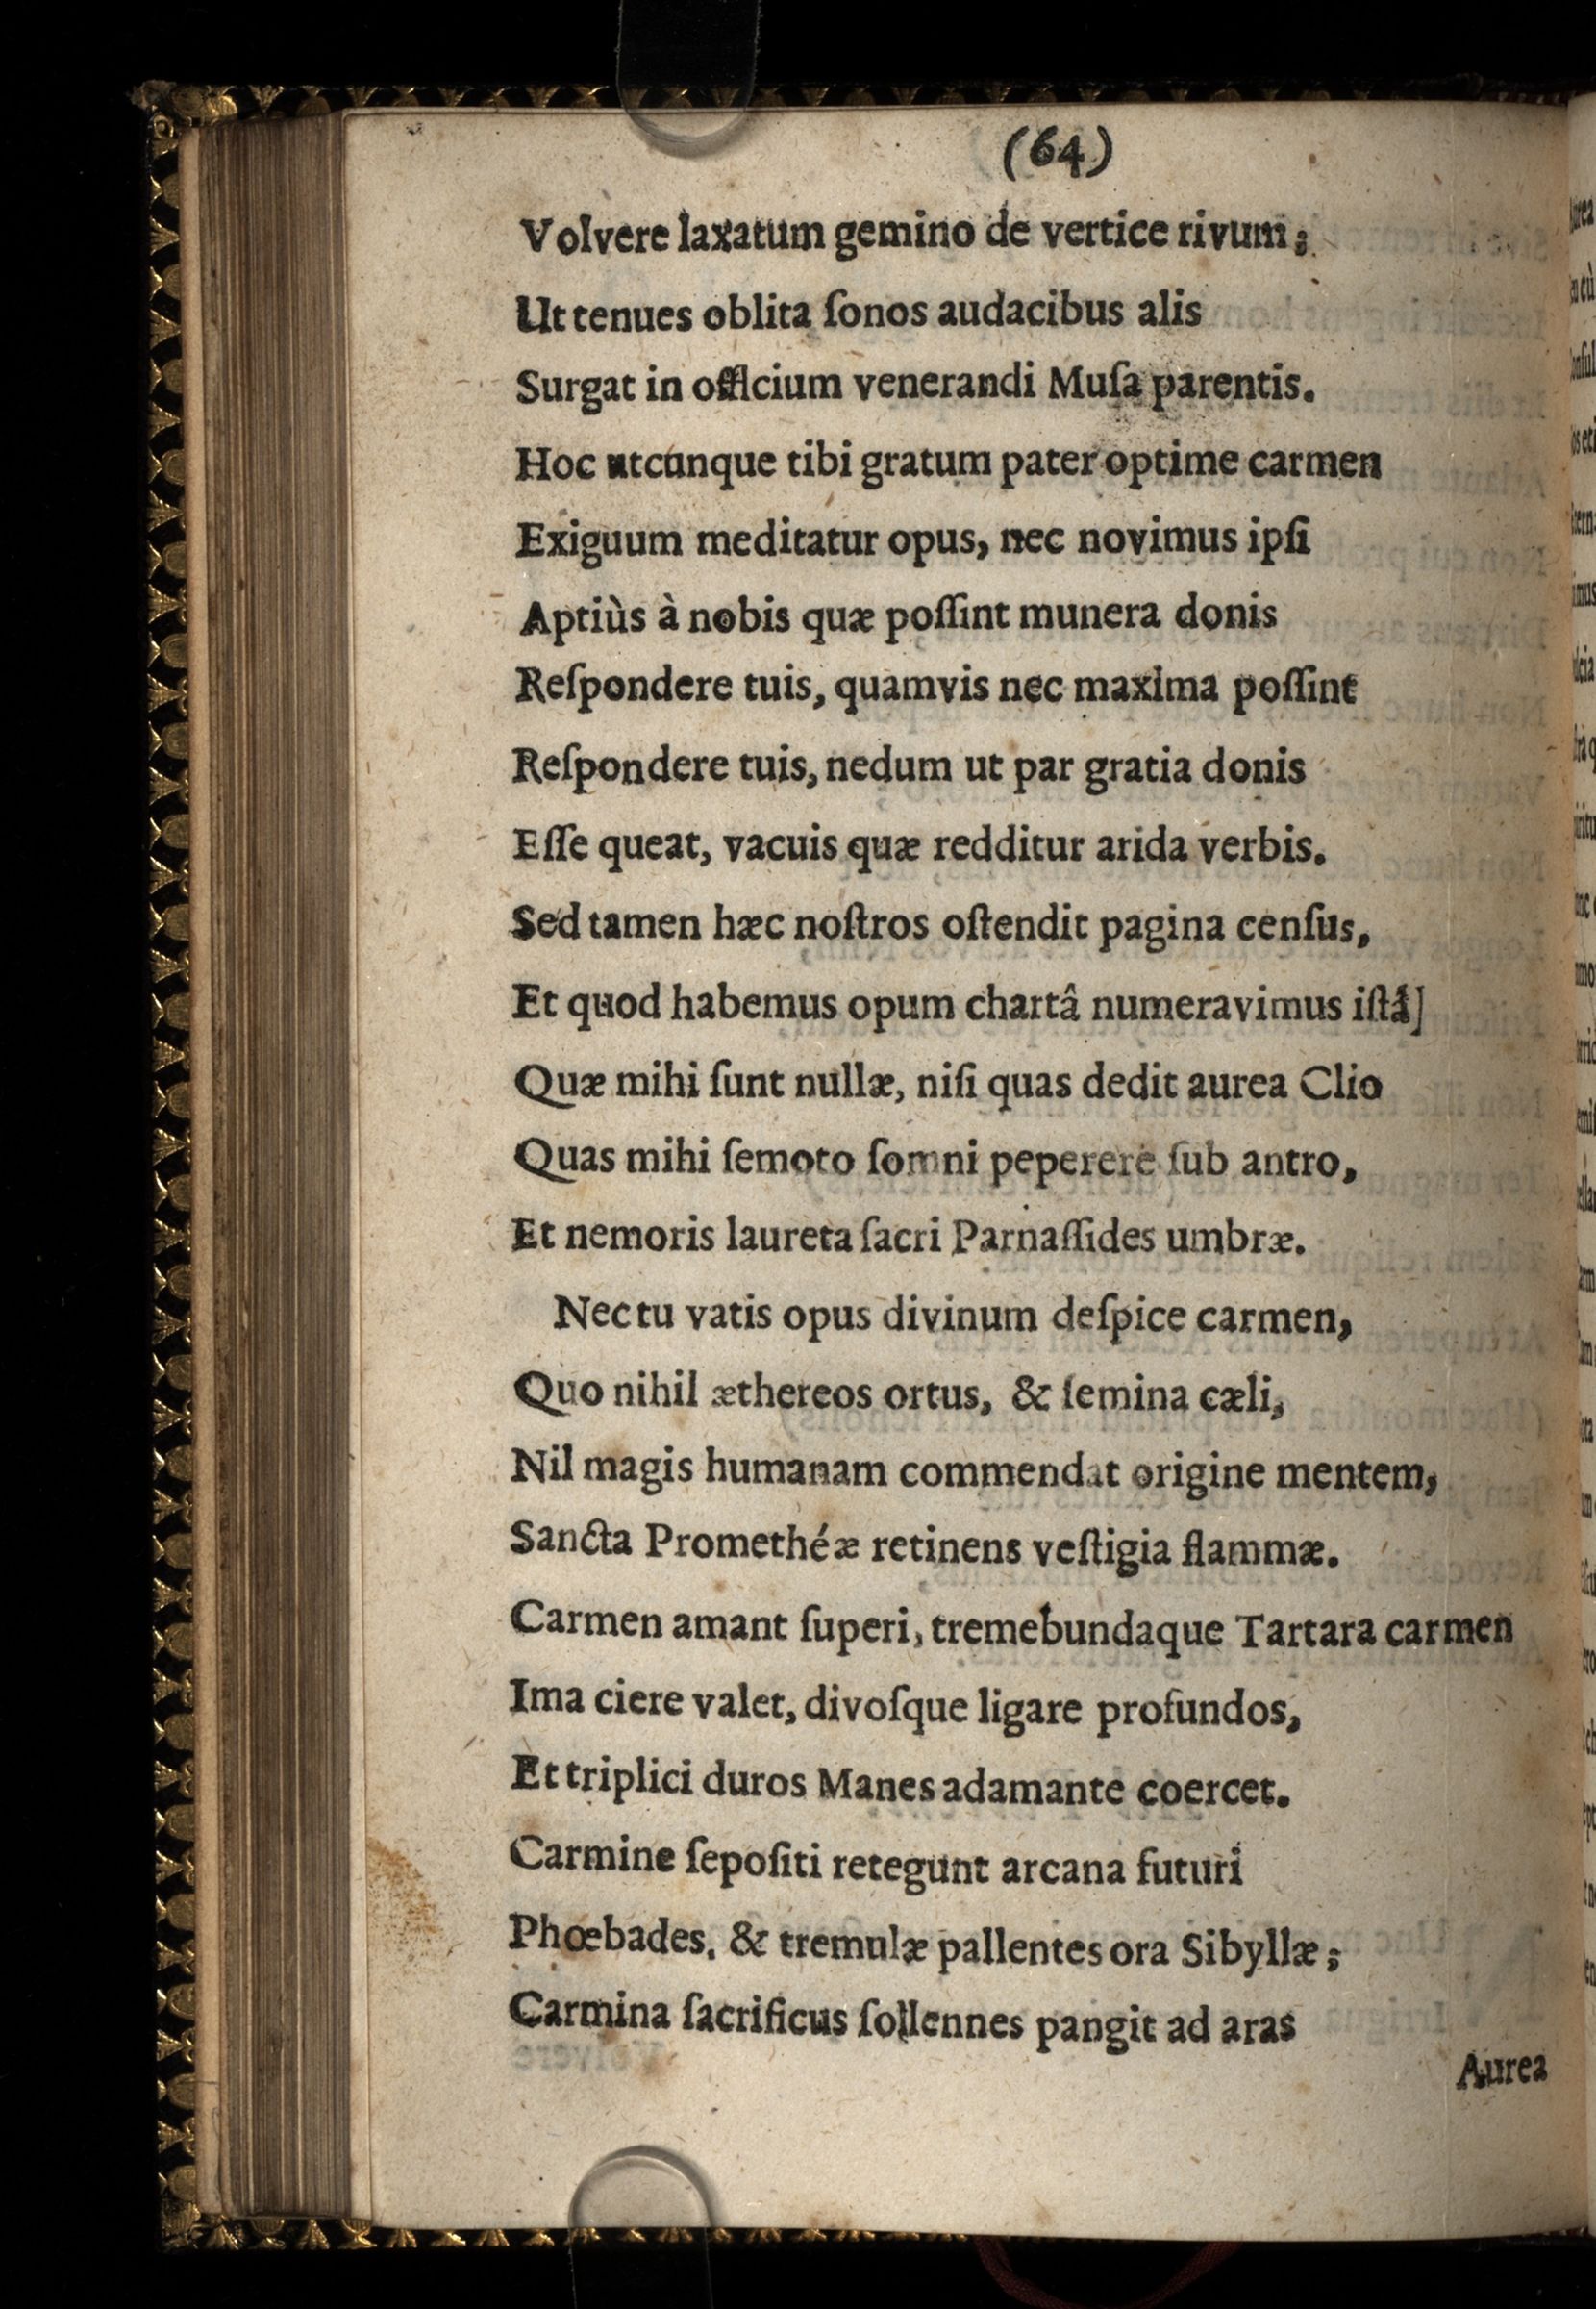 (64)
Volvere laxatum gemino de vertice rivum;
Ut tenues oblita ſonos audacibus alis
Surgat in officium venerandi Muſa parentis.
Hoc utcunque tibi gratum pater optime carmen
Exiguum meditatur opus, nec novimus ipſi
Aptiùs à nobis quæ poſſint munera donis
Reſpondere tuis, quamvis nec maxima poſſint
Reſpondere tuis, nedum ut par gratia donis
Eſſe queat, vacuis quæ redditur arida verbis.
Sed tamen hæc noſtros oſtendit pagina cenſus,
Et quod habemus opum chartâ numeravimus iſtâ]
Quæ mihi ſunt nullæ, niſi quas dedit aurea Clio
Quas mihi ſemoto ſomni peperere ſub antro,
Et nemoris laureta ſacri Parnaſſides umbræ.
Nec tu vatis opus divinum deſpice carmen,
Quo nihil æthereos ortus, & ſemina cæli,
Nil magis humanam commendat origine mentem,
Sancta Prometheæ retinens veſtigia flammæ.
Carmen amant ſuperi, tremebundaque Tartara carmen
Ima ciere valet, divoſque ligare profundos,
Et triplici duros Manes adamante coercet.
Carmine ſepoſiti retegunt arcana futuri
Phœbades, & tremulæ pallentes ora Sibyllæ;
Carmina ſacrificus ſollennes pangit ad aras
Aurea